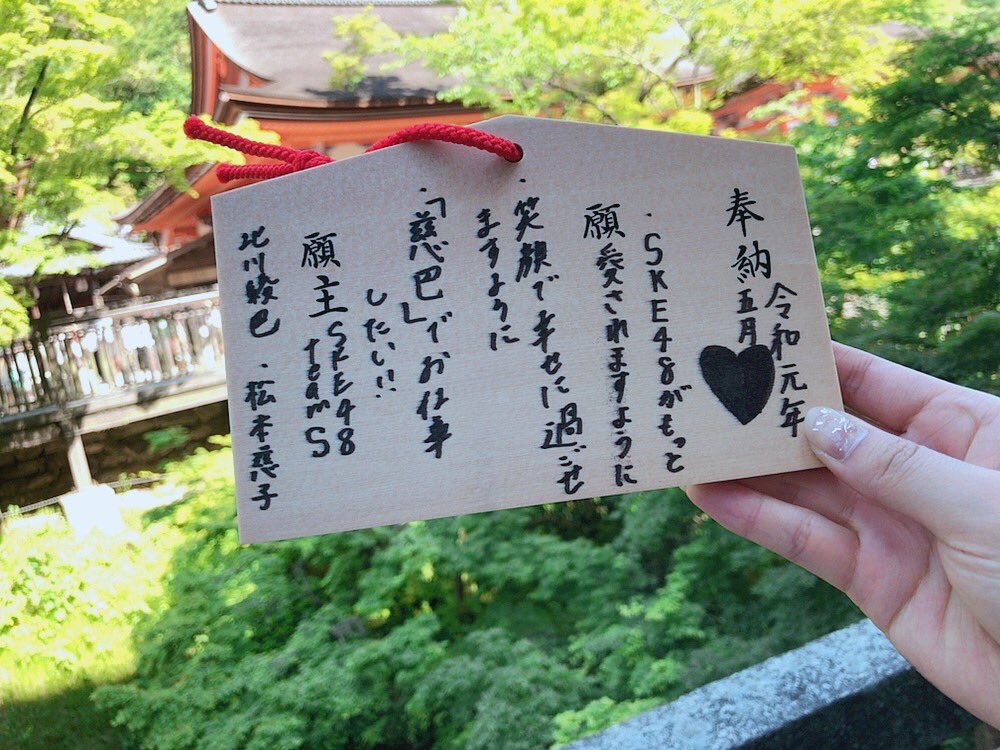 奉納
令和元年
五月
・SKE48がもっと
願
愛されますように
・笑顔で幸せに過ごせ
ますように
・「慈巴」でお仕事
したい!!
願主
SKE48
teamS
北川綾巴・松本慈子